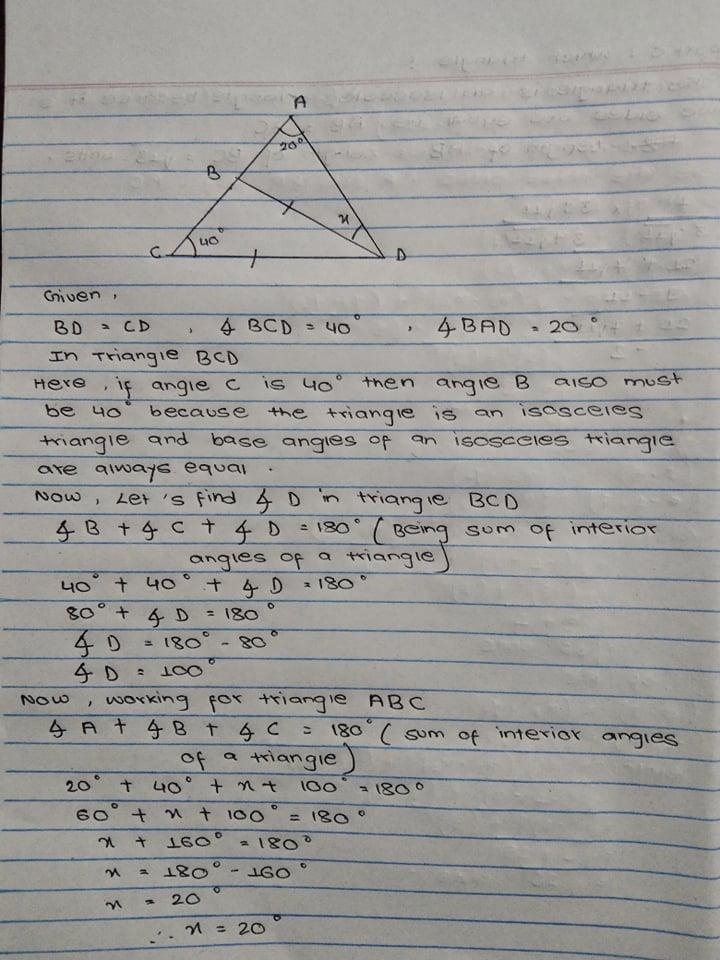 A
20°
B
x
C
40°
D
Given,
BD = CD , ∠BCD = 40° , ∠BAD = 20°
In Triangle BCD
Here, if angle C is 40° then angle B also must
be 40° because the triangle is an isosceles
triangle and base angles of an isosceles triangle
are always equal.
Now, Let's find ∠D in triangle BCD
∠B + ∠C + ∠D = 180° (Being sum of interior
angles of a triangle)
40° + 40° + ∠D = 180°
80° + ∠D = 180°
∠D = 180° - 80°
∠D = 100°
Now, working for triangle ABC
∠A + ∠B + ∠C = 180° (sum of interior angles
of a triangle)
20° + 40° + x + 100° = 180°
60° + x + 100° = 180°
x + 160° = 180°
x = 180° - 160°
x = 20°
∴ x = 20°